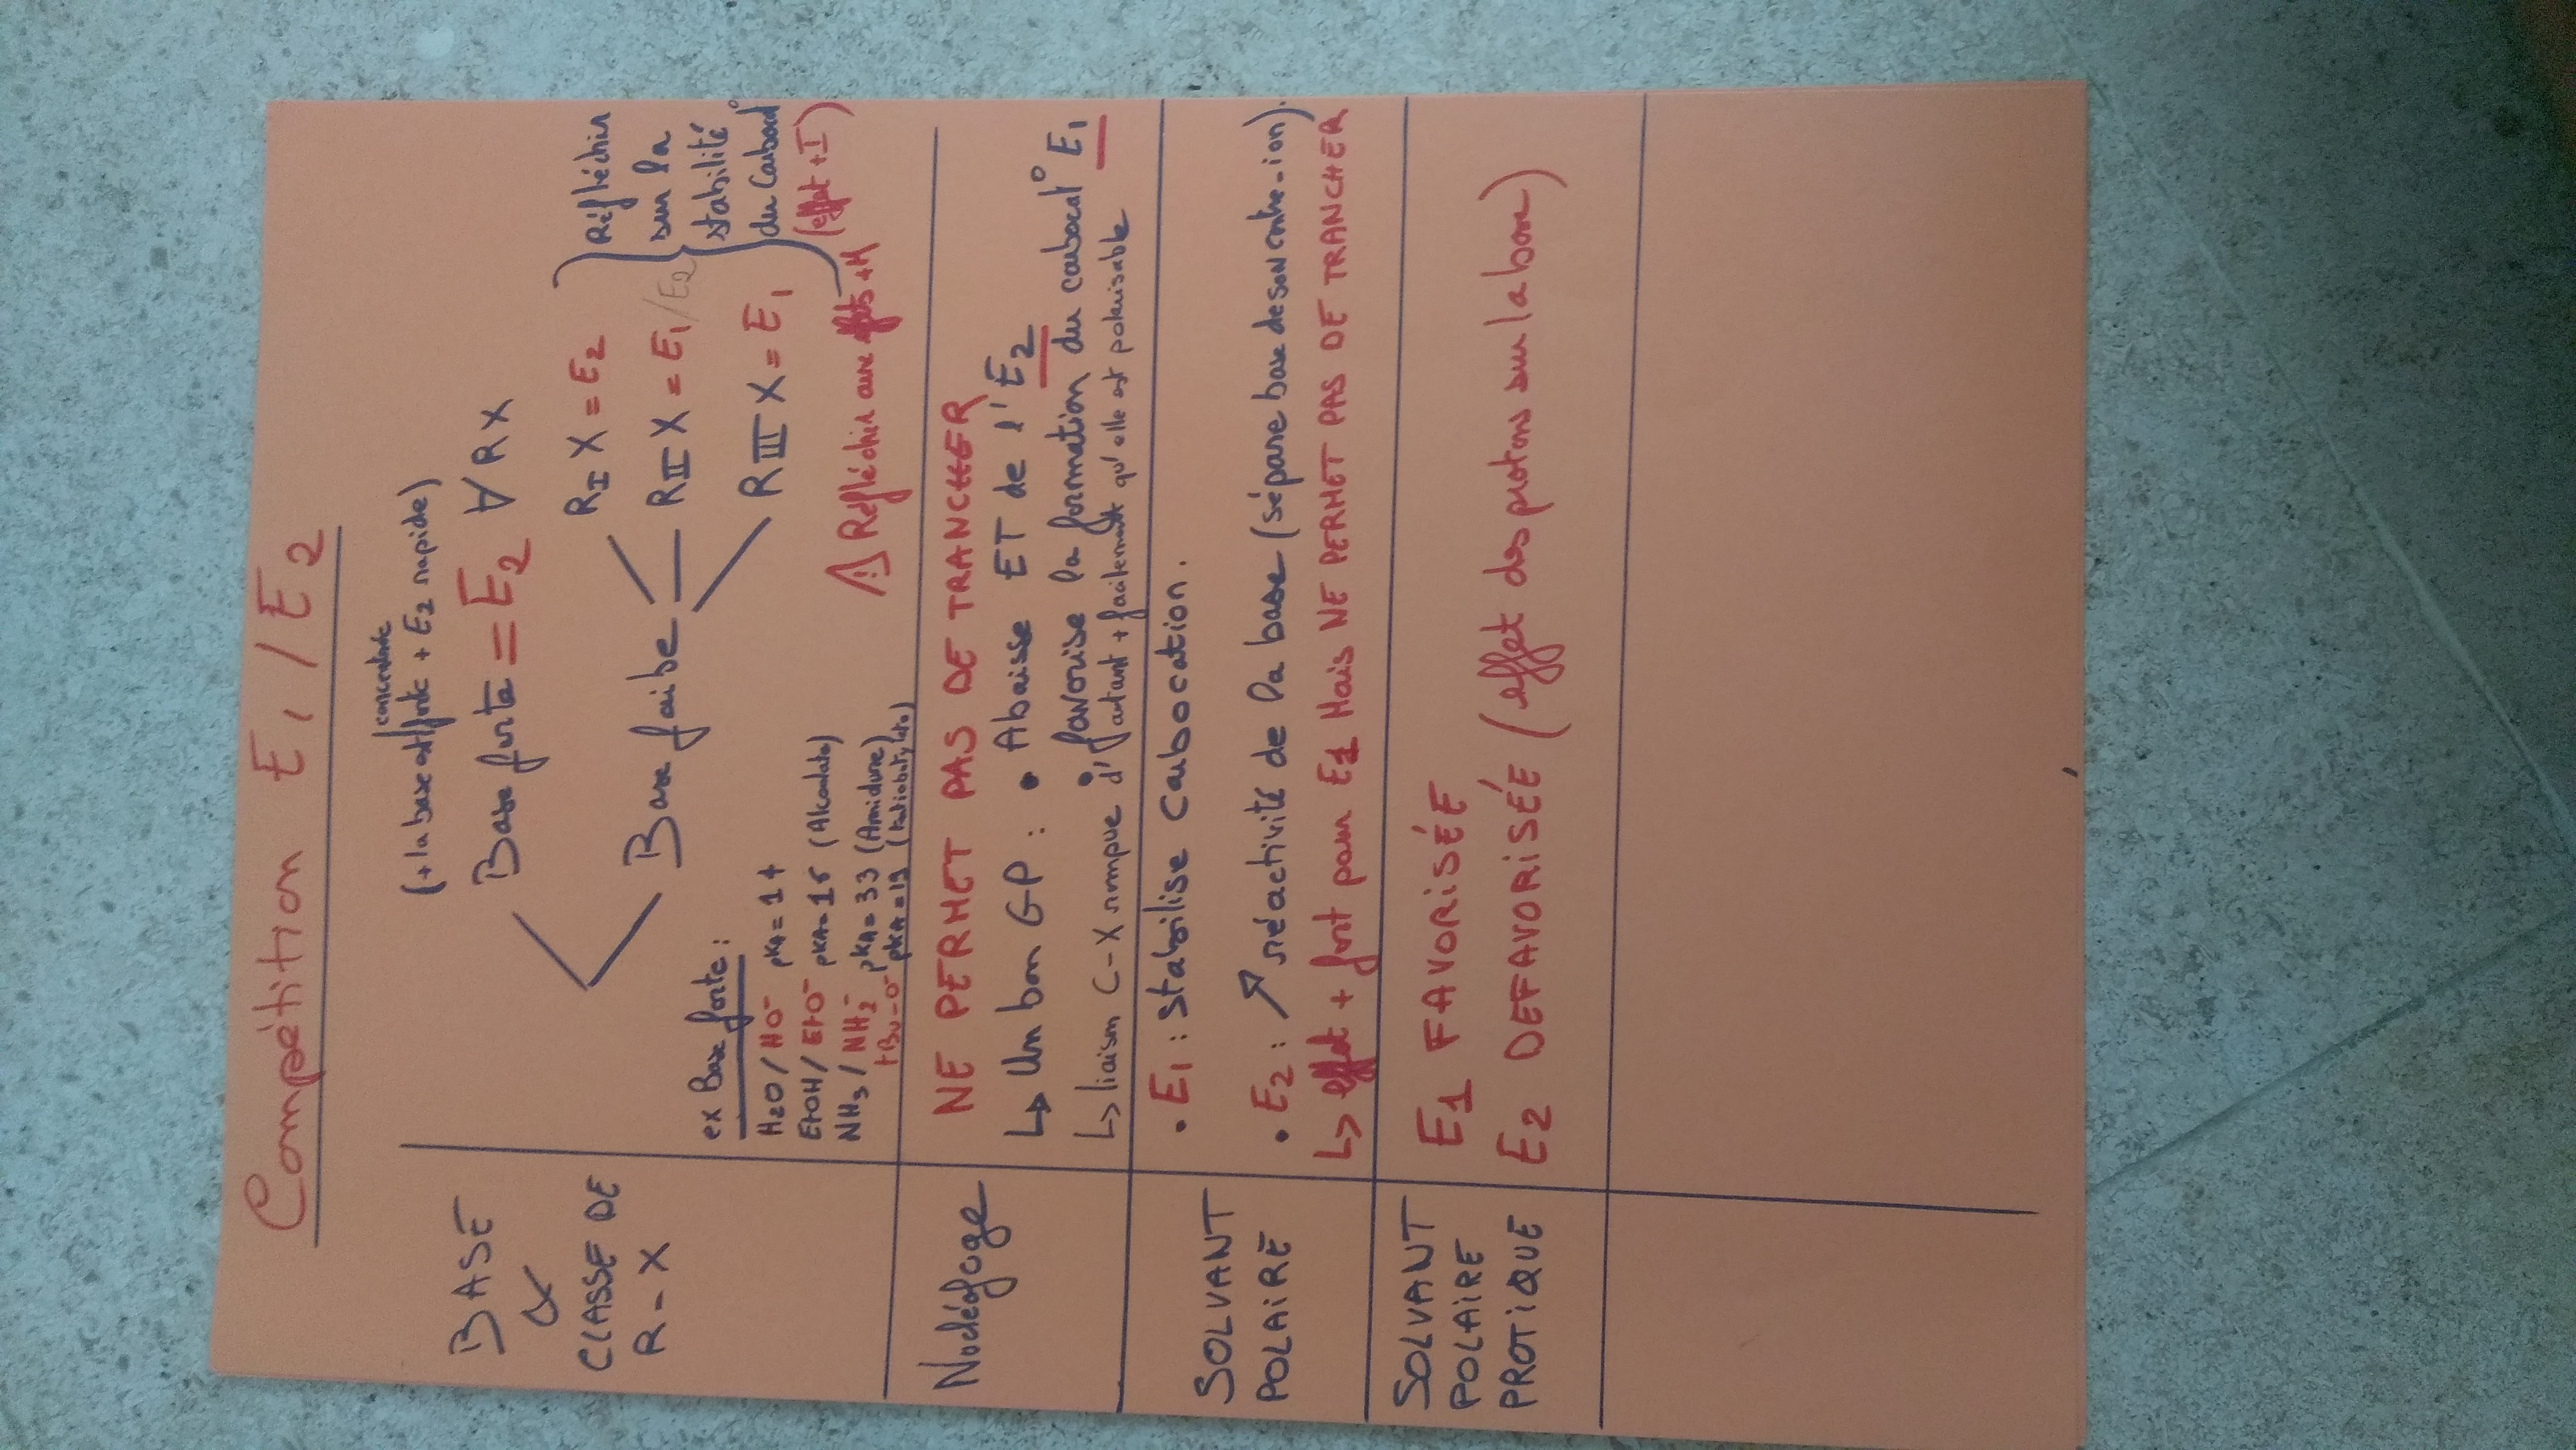 Compétition E1/E2
BASE
&
CLASSE DE
R-X
concentrée
(+ la base est forte + E2 rapide)
Base forte = E2 ∀ RX
Base faibe
RI X = E2
RII X = E1/E2
RIII X = E1
Réfléchir
sur la
stabilité
du Carbocat°
(effet +I)
⚠ Réfléchir aux effets +M
ex Base forte :
H2O/HO⁻ pKA=14
EtOH/EtO⁻ pKA=16 (Alcoolate)
NH3/NH2⁻ pKA=33 (Amidure)
tBu-O⁻ pKA=19 (tertiobutylate)
Nucléofuge
NE PERMET PAS DE TRANCHER
↳ Un bon GP : • Abaisse ET de l'E2
• favorise la formation du carbocat° E1
↳ liaison C-X rompue d'autant + facilement qu'elle est polarisable
SOLVANT
POLAIRE
• E1 : stabilise Carbocation.
• E2 : ↗ réactivité de la base (sépare base de son contre-ion).
↳ effet + fort pour E1 Mais NE PERMET PAS DE TRANCHER
SOLVANT
POLAIRE
PROTIQUE
E1 FAVORISÉE
E2 DEFAVORISÉE (effet des protons sur la base)